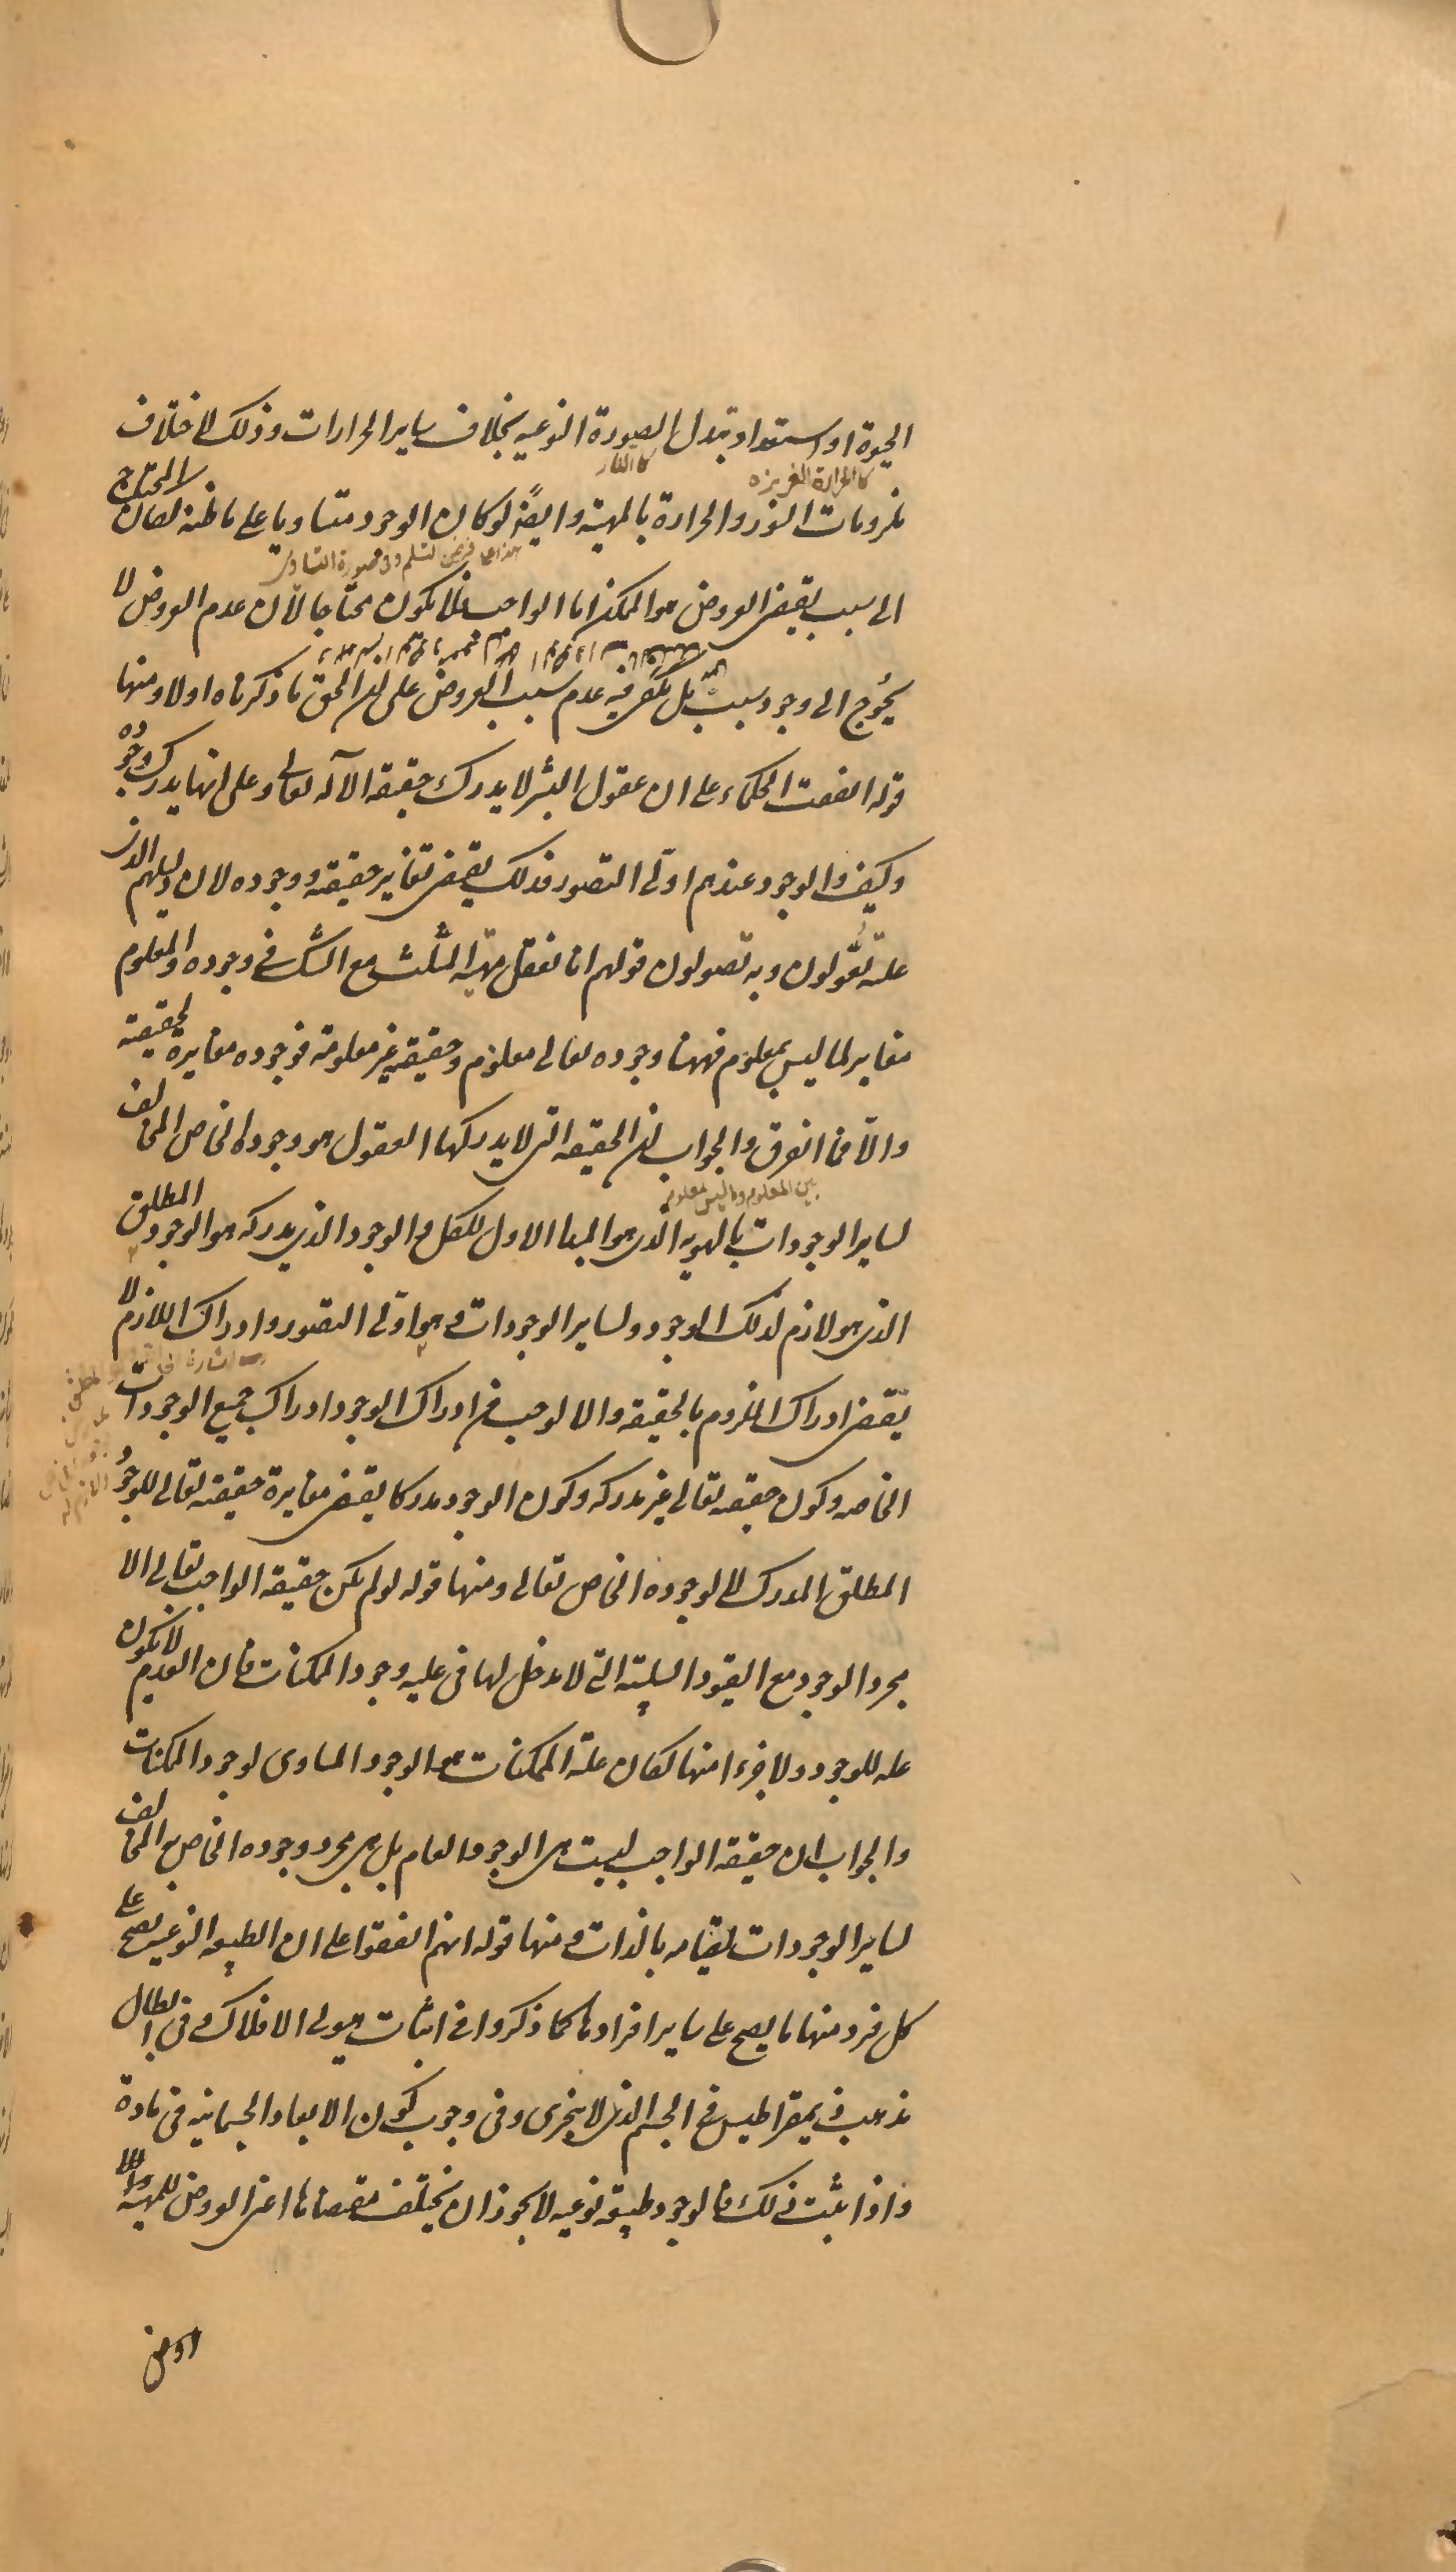 الحيوة او استعداد تبدل الصورة النوعيه بخلاف ساير الحرارات وذلك لاختلاف
كالحرارة الغريزه
كالنار
ملزومات النور والحرارة بالمهية وايضًا لو كان الوجود متساويا على ما ظنه لكان المحتاج
هذا على فرض لتسلم وفى صورة التساوى
الى سبب يقتضى العروض هو الممكن اما الواجب فلا يكون محتاجا لأن عدم العروض لا
يحُوج الى وجود سبب بل يكفى فيه عدم سبب العروض على ان الحق ما ذكرناه اولا ومنها
قوله اتفقت الحكماء على ان عقول البشر لا يدرك حقيقه الآله تعالى وعلى انها يدرك وجُوده
وكيف والوجود عندهم اوّلى التصور فذلك يقتضى تغاير حقيقته ووجوده لان دليلهم الذى
عليه تعُولون وبه تصولون قولهم انا نعقل مهيّة المثلث مع الشك فى وجوده والمعلوم
مغاير لما ليس بمعلوم فههنا وجوده تعالى معلوم وحقيقته غير معلومة فوجوده مغايرة لحقيقته
والّا فما الفرق والجواب ان الحقيقه التى لا يدركها العقول هو وجوده الخاص المخالف
بين المعلوم وما ليس بمعلوم
لساير الوجودات بالهويه الذى هو المبدا الاول للكل والوجود الذى يدركه هو الوجود المطلق
الذى هو لازم لذلك الوجود ولساير الوجودات وهو اوّلى التصور وادراك اللازم لا
يقتضى ادراك الملزوم بالحقيقه والا لوجب من ادراك الوجود ادراك جميع الوجودات
الخاصه وكون حقيقته تعالى غير مدركه وكون الوجود مدركا يقتضى مغايرة حقيقته تعالى للوجُود
المطلق المدرك لا لوجوده الخاص تعالى ومنها قوله لو لم يكن حقيقه الواجب تعالى الا
مجرد الوجود مع القيود السلبيّة التى لا مدخل لها فى عليه وجود الممكنات فان العدم لا يكون
عله للوجود ولا جزءا منها لكان علة الممكنات هو الوجود المساوى لوجود الممكنات
والجواب ان حقيقه الواجب ليست هى الوجود العام بل هى مجرد وجوده الخاص به المخالف
لساير الوجودات لقيامه بالذات ومنها قوله انهم اتفقوا على ان الطبيعه النوعيه يصح على
كل فرد منها ما يصح على ساير افرادها كما ذكروا فى اثبات هيولى الافلاك وفى ابطال
مذهب ذيمقراطيس فى الجسم الذى لا يتجزى وفى وجوب كون الابعاد الجسمانيه فى مادة
واذا ثبت ذلك فالوجود طبيعه نوعيه لا يجوز ان يختلف مقتضاها اعنى العروض للمهية واللا